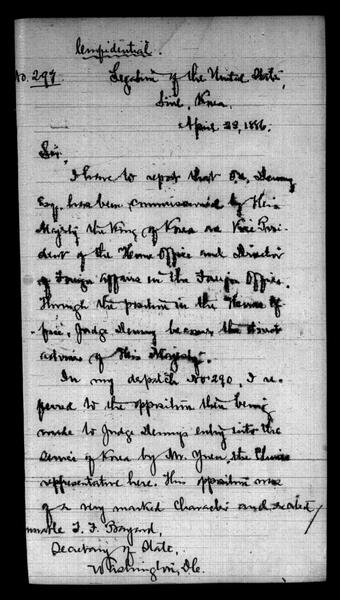 Confidential.
No. 297 Legation of the United States,
Söul, Korea,
April 23, 1886.
Sir,
I have to report that O.N. Denny
Esq. has been commissioned by His
Majesty the King of Korea as Vice Presi-
dent of the Home Office and Director
of Foreign Affairs in the Foreign Office.
Through the position in the Home Of-
fice, Judge Denny becomes the
adviser of His Majesty.
In my dispatch No. 290, I re-
ferred to the opposition then being
made to Judge Denny's entry into the
service of Korea by Mr. Yuen, the Chinese
representative here. This opposition was
of a very marked character and
T. F. Bayard,
Secretary of State,
Washington, D.C.